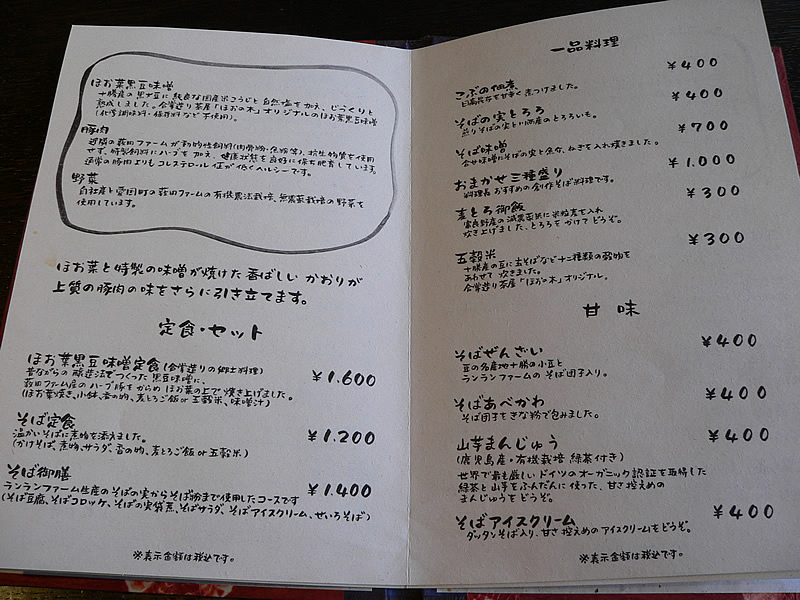 ほお葉黒豆味噌
十勝産の黒大豆に純良な国産米こうじと自然塩を加え、じっくりと
熟成しました。合掌造り茶屋「ほおの木」オリジナルのほお葉黒豆味噌
(化学調味料・保存料など不使用)。
豚肉
近隣の薮田ファームが動物性飼料(肉骨粉・魚粉等)、抗生物質を使用
せず、特製飼料にハーブを加え、健康状態を良好に保ち肥育しています。
通常の豚肉よりもコレステロール値が低くヘルシーです。
野菜
自社産と愛国町の薮田ファームの有機農法栽培、無農薬栽培の野菜を
使用しています。
ほお葉と特製の味噌が焼けた香ばしいかおりが
上質の豚肉の味をさらに引き立てます。
定食・セット
ほお葉黒豆味噌定食(合掌造りの郷土料理) ¥1.600
昔ながらの醸造法でつくった黒豆味噌に、
薮田ファーム産のハーブ豚をからめほお葉の上で焼き上げました。
(ほお葉焼き、小鉢、香の物、麦とろご飯or五穀米、味噌汁)
そば定食 ¥1.200
温かいそばに煮物を添えました。
(かけそば、煮物、サラダ、香の物、麦とろご飯or五穀米)
そば御膳 ¥1.400
ランランファーム生産のそばの実からそば粉まで使用したコースです
(そば豆腐、そばコロッケ、そばの実袋煮、そばサラダ、そばアイスクリーム、せいろそば)
※表示金額は税込です。
一品料理
こぶの佃煮 ¥400
日高昆布を甘辛く煮つけました。
そばの実とろろ ¥400
煎りそばの実と川西産のとろろいも。
そば味噌 ¥700
合せ味噌にそばの実と魚介、ねぎを入れ焼きました。
おまかせ三種盛り ¥1.000
料理長おすすめの創作そば料理です。
麦とろ御飯 ¥300
富良野産の減農薬米に米粒麦を入れ
炊き上げました、とろろをかけてどうぞ。
五穀米 ¥300
十勝産の豆に玄そばなど十二種類の穀物を
あわせて炊きました。
合掌造り茶屋「ほおの木」オリジナル。
甘味
そばぜんざい ¥400
豆の名産地十勝の小豆と
ランランファームのそば団子入り。
そばあべかわ ¥400
そば団子をきな粉で包みました。
山芋まんじゅう ¥400
(鹿児島産・有機栽培 緑茶付き)
世界で最も厳しいドイツのオーガニック認証を取得した
緑茶と山芋をふんだんに使った、甘さ控えめの
まんじゅうをどうぞ。
そばアイスクリーム ¥400
ダッタンそば入り、甘さ控えめのアイスクリームをどうぞ。
※表示金額は税込です。